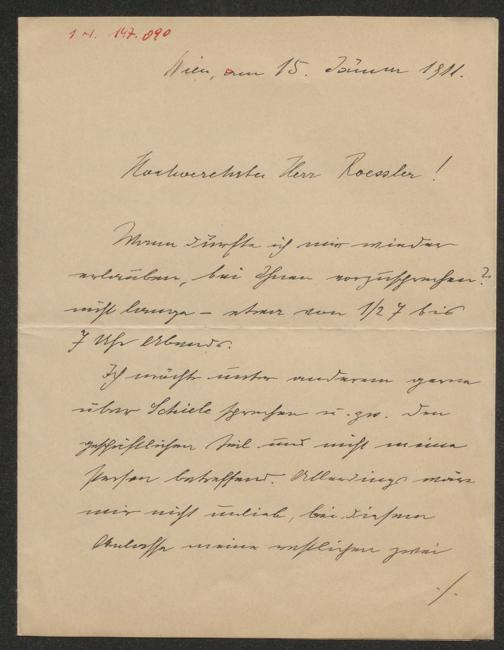 I.N. 147.090
Wien, am 15. Jänner 1911.
Hochverehrter Herr Roessler!
Wann dürfte ich mir wieder
erlauben, bei Ihnen vorzusprechen?
nicht lange – etwa von 1/2 7 bis
7 Uhr Abends.
Ich möchte unter anderem gerne
über Schiele sprechen u. zw. den
geschäftlichen Teil und nicht meine
Person betreffend. Allerdings wäre
mir nicht unlieb, bei diesem
Anlasse meine restlichen zwei
./.